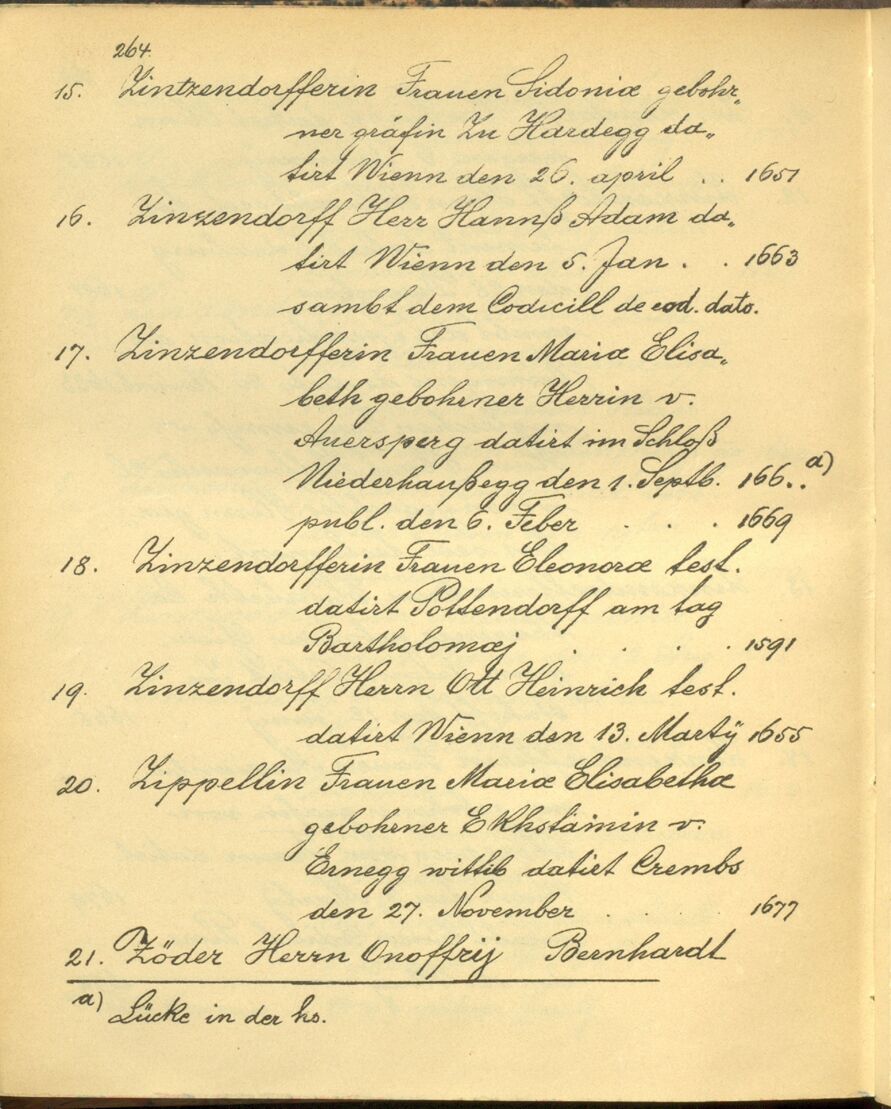 264.
15. Zintzendorfferin Frauen Sidoniæ gebohr„
ner gräfin Zu Hardegg da„
tirt Wienn den 26. april . . 1651
16. Zinzendorff Herr Hannß Adam da„
tirt Wienn den 5. Jan . . 1663
sambt dem Codicill de eod. dato.
17. Zinzendorfferin Frauen Mariæ Elisa„
beth gebohrner Herrin v.
Auersperg datirt im Schloß
Niederhaußegg den 1. Septb. 166.. a)
publ. den 6. Feber . . . 1669
18. Zinzendorfferin Frauen Eleonoræ test.
datirt Pottendorff am tag
Bartholomæj . . . . 1591
19. Zinzendorff Herrn Ott Heinrich test.
datirt Wienn den 13. Martÿ 1655
20. Zippellin Frauen Mariæ Elisabethæ
gebohrner Ekhstainin v.
Ernegg wittib datirt Crembs
den 27. November . . . . 1677
21. Zöder Herrn Onoffrij Bernhardt
a) Lücke in der hs.